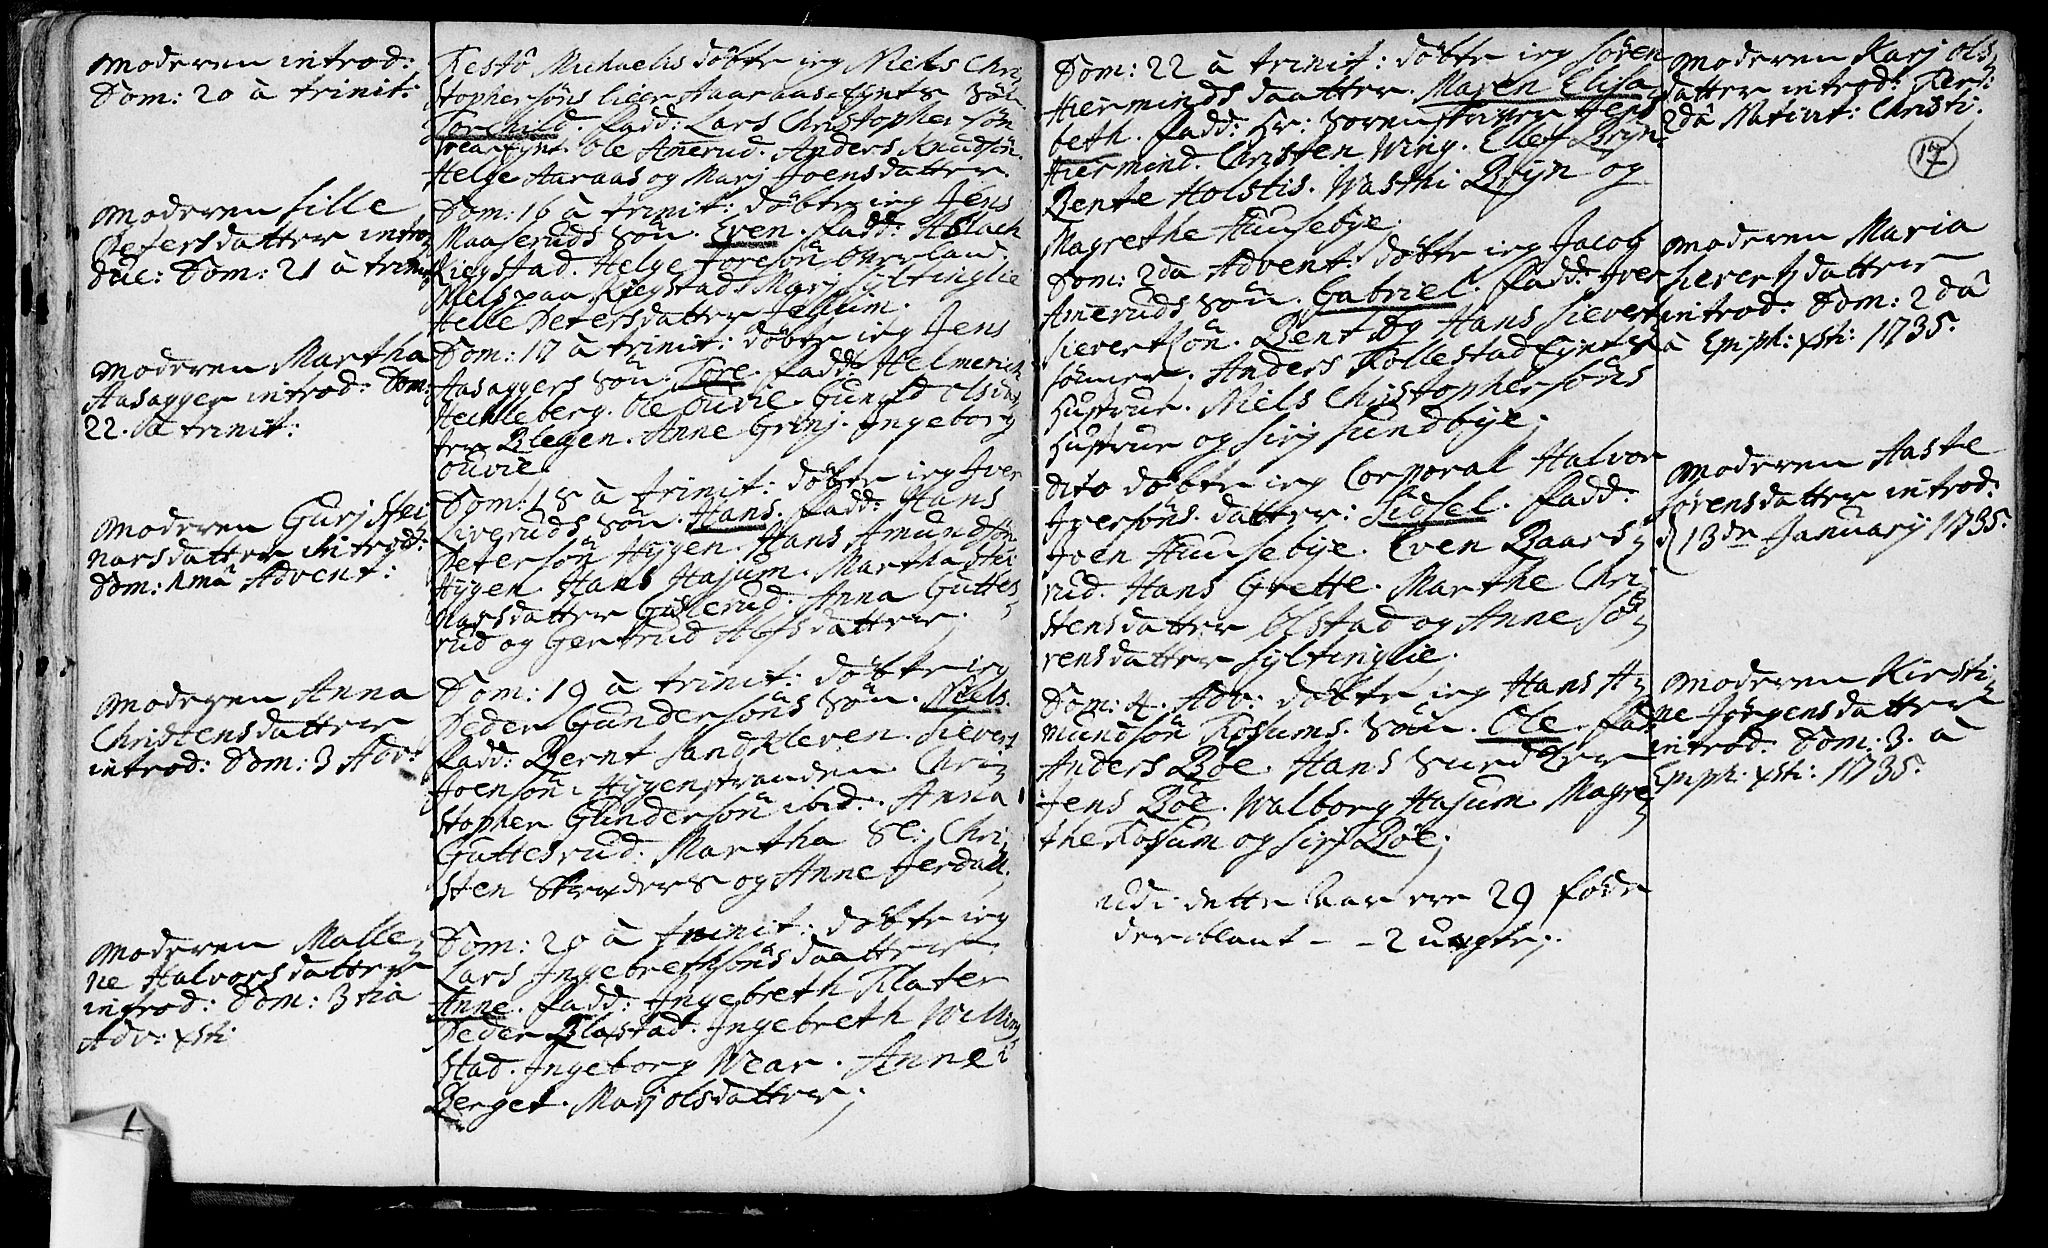 Moderen introd:
Dom: 20 à trinit:
Moderen Sille
Petersdatter intro
duc: Dom: 21 à trinit
Moderen Martha
Aasagger introd: Dom:
22. à trinit:
Moderen Gurj Stei
narsdatter introd:
Dom: 1mâ Advent:
Moderen Anna
Christensdatter
introd: Dom: 3 Adv:
Moderen Malle
ne Halvorsdatter
introd: Dom: 3tia
Adv: xsti
Festô Michaelis döbte ieg Niels Chri
stophersöns eller Aaraas sön
Lars Christophersön
Ole Amerud. Anders Knudsön.
Helge Aaraas og Marj Joensdatter
Dom: 16 à trinit: döbte ieg Jens
Maaseruds Sön. Even. Fadd: Aslach
Kiegstad. Helge Joresön Overland.
Niels paa Kiegstad Marj Syltinglie
Helle Petersdatter Jessum.
Dom: 17 à trinit: döbte ieg Jens
Aasaggers Sön. Tore. Fadd: Helmerich
Heckleberg. Ole Ouvie. Gunild Olsdat
ter Blegen. Anne Grinj. Ingeborg
Ouvie.
Dom: 18 à trinit: döbte ieg Iver
Liveruds Sön. Hans. Fadd: Hans
Petersön Hÿgen. Hans Amundsön
Hÿgen Hans Hajum. Martha Stei
narsdatter Gullerud. Anna Guttes
rud og Gertrud Olefsdatter;
Dom: 19 à trinit: döbte ieg
Peder Gundersöns Sön. Niels.
Fadd: Bernt Sandkleven. Sievert
Joensön i Hÿgenstranden. Chri
stopher Gundersön ibid: Anna
Guttesrud. Martha Sl: Chri
sten Skræders og Anne Jerdall.
Dom: 20 à trinit: döbte ieg
Lars Ingebrethsöns daatter
Anne. Fadd: Ingebreth Klater
Peder Blastad. Ingebreth Willing
stad. Ingeborg Wear. Anne i
Berget. Marj Olsdatter;
Dom: 22 à trinit: döbte ieg Sören
Hierminds daatter. Maren Elisa
beth. Fadd: Hr: Sorenskriver Jens
Hiermind. Christen Wing. Ellef Brÿn.
Bente Holstis. Wasthi Brÿn og
Magrethe Huusebÿe;
Dom: 2da Advent: döbte ieg Jacob
Ameruds Sön. Gabriel. Fadd: Iver
Sievertsön. Bent og Hans Sievert
sönner. Anders Tollestad
Hustrue. Niels Christophersöns
Hustrue og Sirj Sundbÿe;
Dito döbte ieg Corporal Halvor
Iversöns datter: Sidsel. Fadd:
Joen Huusebÿe. Even Baars
rud. Hans Grette. Marthe Chri
stensdatter Olstad og Anne Sö
rensdatter Syltinglie.
Dom: 4. Adv: döbte ieg Hans A
mundsön Kossums Sön. Ole. Fad
Anders Böe. Hans
Jens Böe. Walborg Hajum. Magre
the Kossum og Sirj Böe;
Udi dette Aar ere 29 föde
deriblant - - 2 uægte;
Moderen Karj Ols
datter introd: Ferd:
2dâ Nativit: Christi.
17
Moderen Maria
Sievertsdatter
introd: Dom: 2dâ
à Emph: xsti: 1735.
Moderen Aaste
Sörensdatter introd:
d 13de Januarj 1735.
Moderen Kirsti
ne Jörgensdatter
introd: Dom: 3. à
Emph. xsti: 1735.